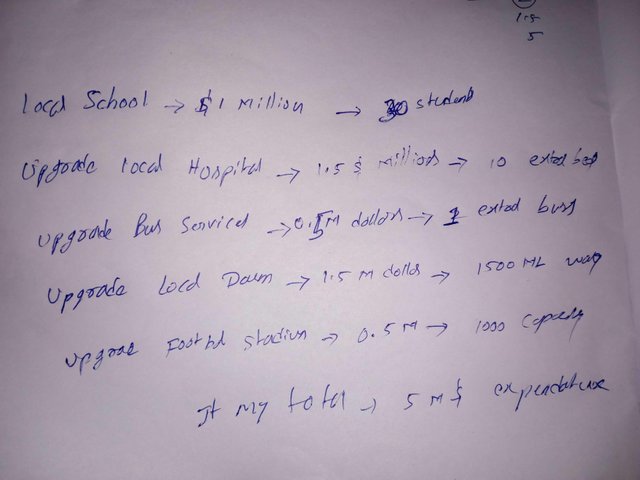 1.5
5
Local School → $1 Million → 30 students
Upgrade local Hospital → 1.5 $ Millions → 10 extra bed
Upgrade Bus Services → 0.5M dollars → 1 extra buss
Upgrade Local Dam → 1.5 M dolls → 1500 ML
Upgrae Football Stadium → 0.5 M → 1000 Capacity
It my total → 5 M $ expendature